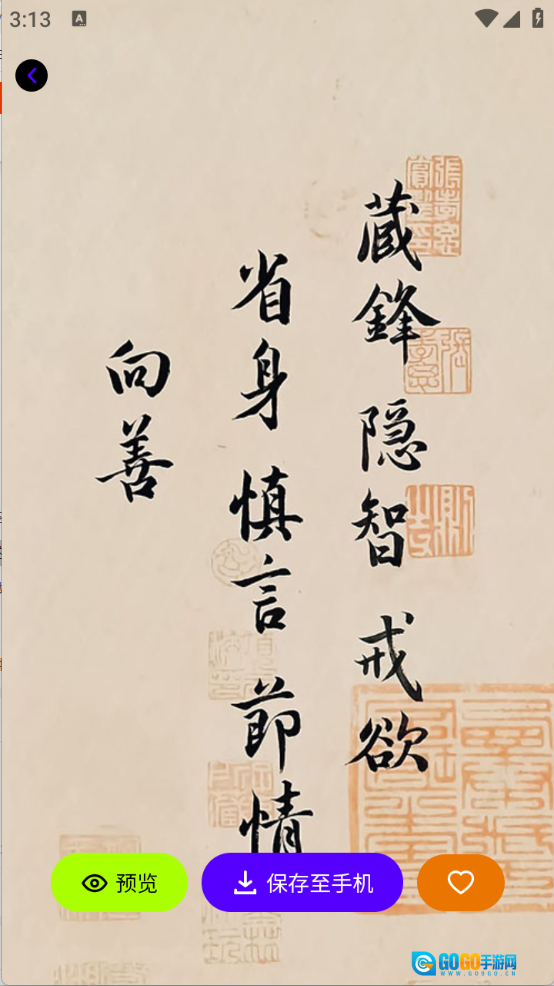 3:13
A
蔵鋒 隐智 戒欲
省身 慎言 節情
向善
预览
保存至手机
GOGO手游网
WWW.GOGO.CN